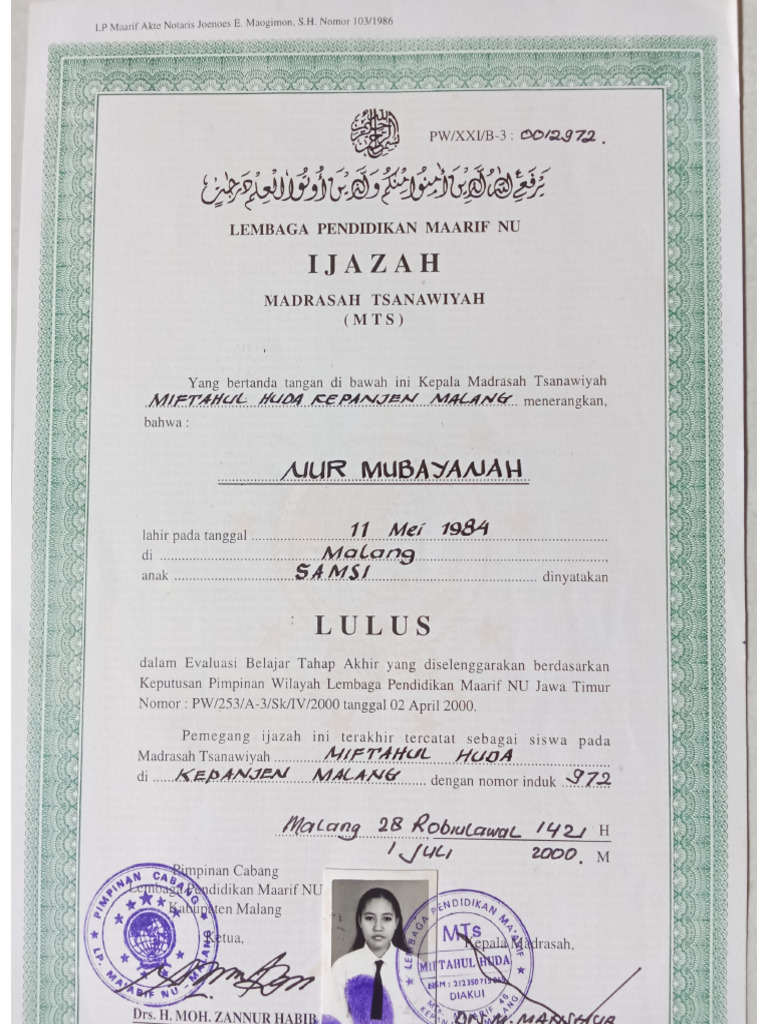 LP Maarif Akte Notaris Joenoes E. Maogimon, S.H. Nomor 103/1986
PW/XXI/B-3 : 0012972.
يرفع الله الذين امنوا منكم والذين أوتوا العلم درجت
LEMBAGA PENDIDIKAN MAARIF NU
IJAZAH
MADRASAH TSANAWIYAH
(MTS)
Yang bertanda tangan di bawah ini Kepala Madrasah Tsanawiyah
MIFTAHUL HUDA KEPANJEN MALANG menerangkan,
bahwa :
NUR MUBAYANAH
lahir pada tanggal 11 Mei 1984
di Malang,
anak SAMSI dinyatakan
LULUS
dalam Evaluasi Belajar Tahap Akhir yang diselenggarakan berdasarkan
Keputusan Pimpinan Wilayah Lembaga Pendidikan Maarif NU Jawa Timur
Nomor : PW/253/A-3/Sk/IV/2000 tanggal 02 April 2000.
Pemegang ijazah ini terakhir tercatat sebagai siswa pada
Madrasah Tsanawiyah MIFTAHUL HUDA
di KEPANJEN MALANG dengan nomor induk 972
Malang 28 Robiulawal 1421 H
1 JULI 2000. M
Pimpinan Cabang
Lembaga Pendidikan Maarif NU
Kabupaten Malang
Ketua,
Kepala Madrasah,
PIMPINAN CABANG
LP. MAARIF NU - MALANG
LEMBAGA PENDIDIKAN MA'ARIF
MTs
MIFTAHUL HUDA
DIAKUI
Drs. H. MOH. ZANNUR HABIB